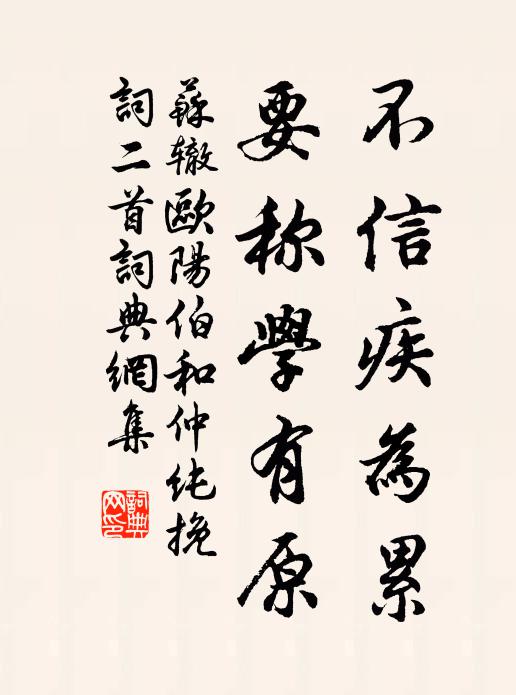 不信疾為累
要称學有原
蘇辙歐陽伯和仲纯挽
詞二首詞典網集
詞典网印